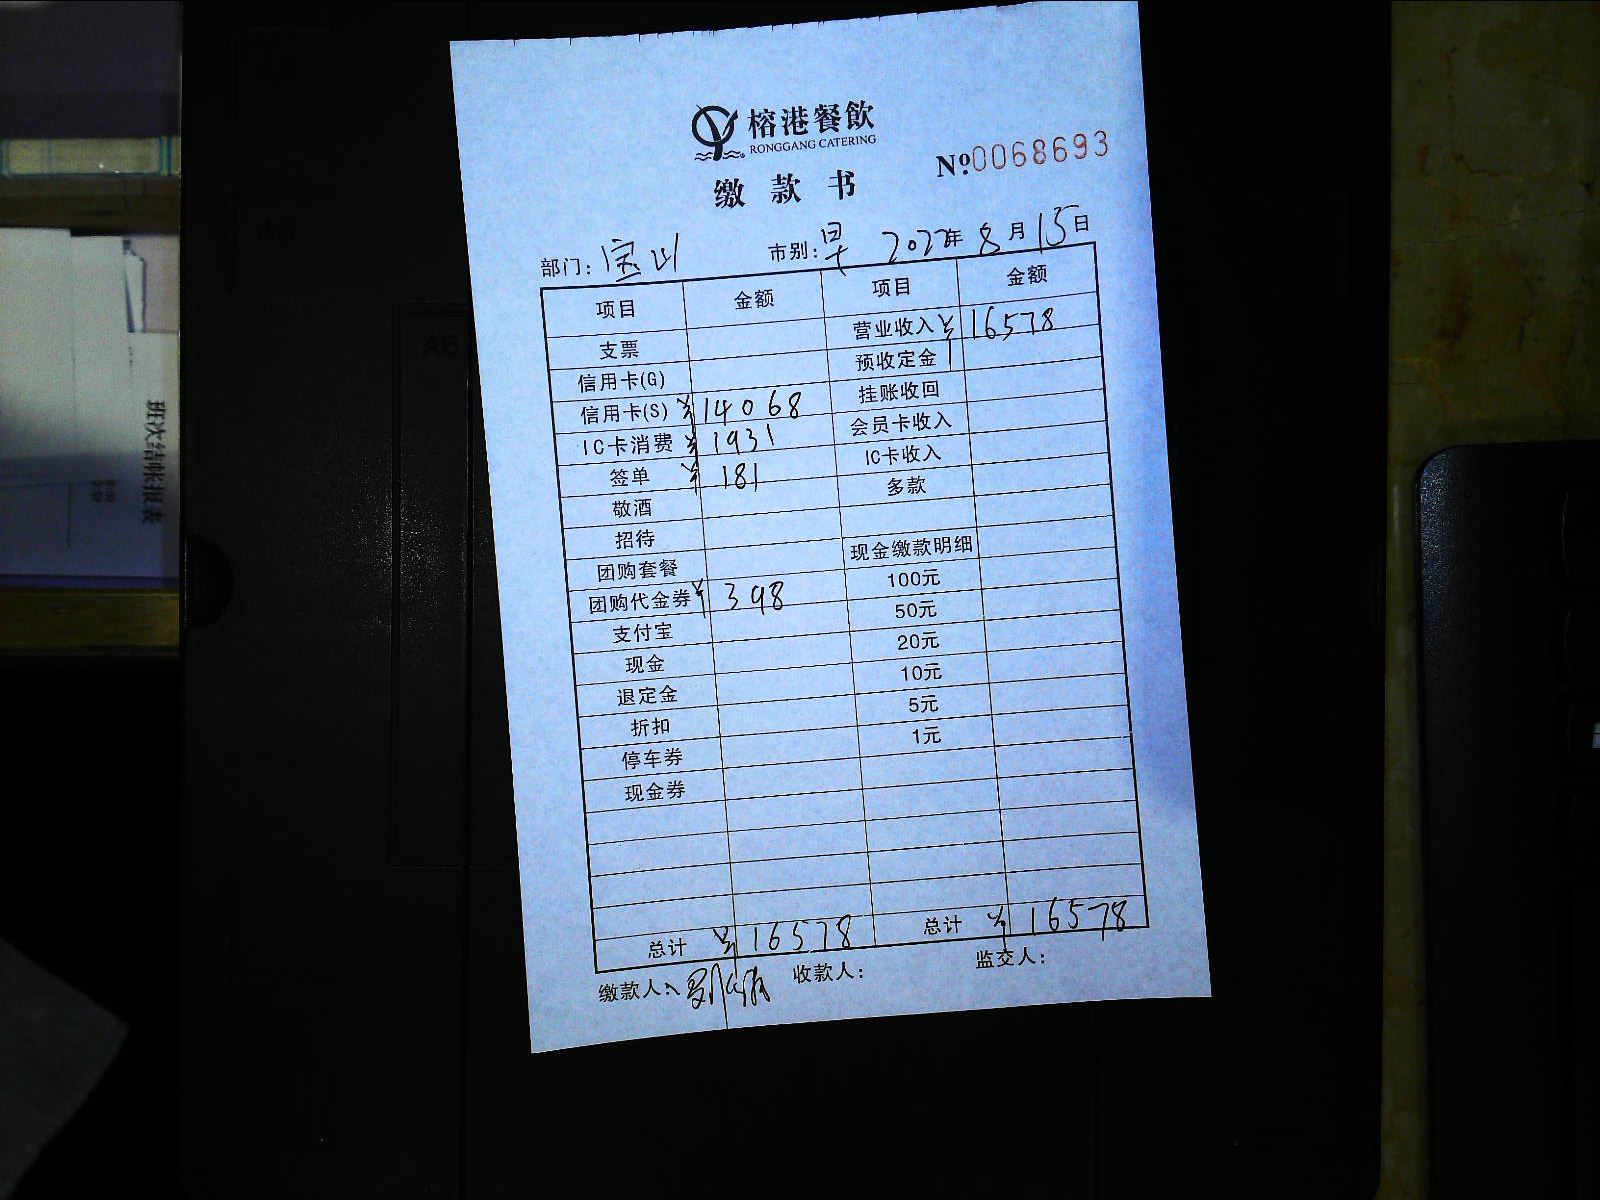 榕港餐飲
RONGGANG CATERING
缴款书
№0068693
部门：宝山 市别：早 2022年8月15日
项目 金额 项目 金额
支票 营业收入 ¥16578
信用卡(G) 预收定金
信用卡(S) ¥14068 挂账收回
IC卡消费 ¥1931 会员卡收入
签单 ¥181 IC卡收入
敬酒 多款
招待
团购套餐 现金缴款明细
团购代金券 ¥398 100元
支付宝 50元
现金 20元
退定金 10元
折扣 5元
停车券 1元
现金券
总计 ¥16578 总计 ¥16578
缴款人： 收款人： 监交人：
班次结帐报表
A6
A6